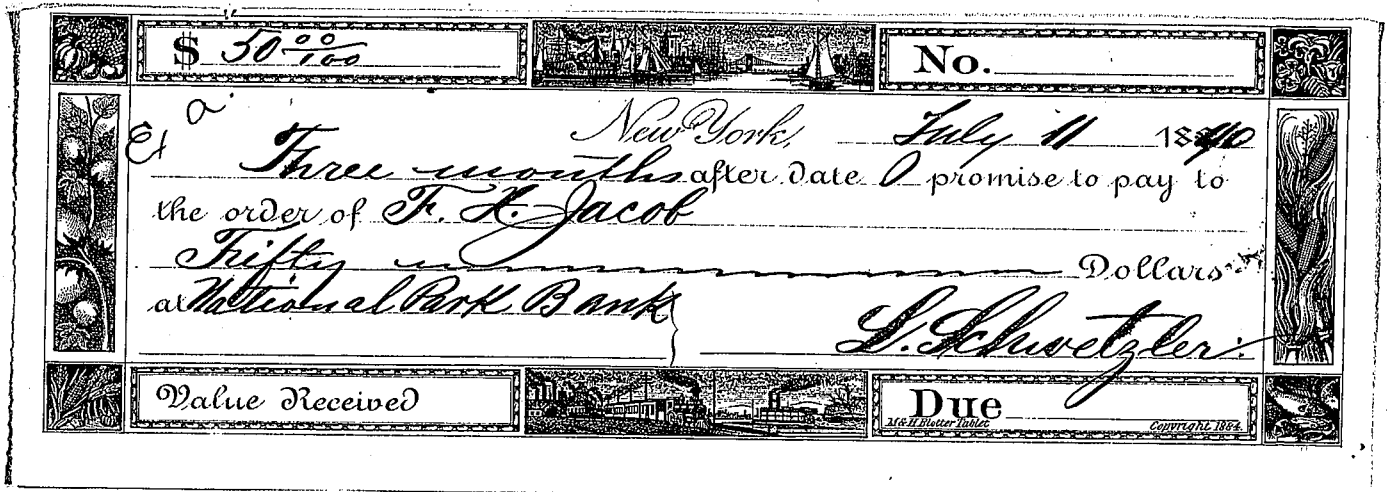 $ 50 00/100
No.
Ex a
New York, July 11 1890
Three months after date I promise to pay to
the order of F. H. Jacob
Fifty Dollars
at National Park Bank
L. Schwetzler
Value Received
Due
M & H Blotter Tablet
Copyright 1884.